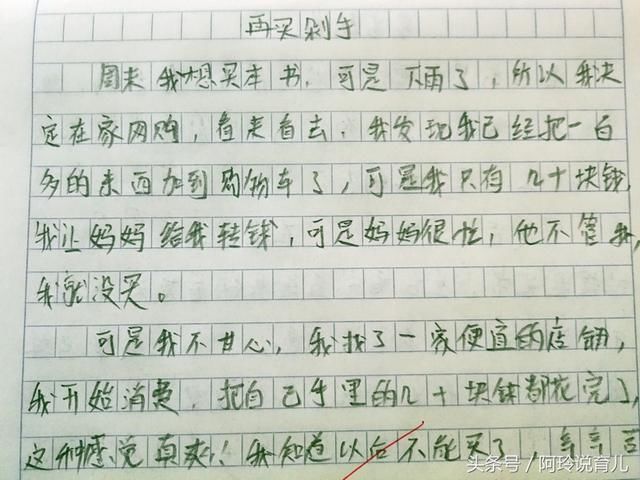 再买剁手
周末我想买本书，可是下雨了，所以我决
定在家网购，看来看去，我发现我已经把一百
多的东西加到购物车了，可是我只有几十块钱，
我让妈妈给我转钱，可是妈妈很忙，他不管我，
我就没买。
可是我不甘心，我找了一家便宜的店铺，
我开始消费，把自己手里的几十块钱都花完了，
这种感觉真爽！我知道以后不能买了，
头条号／阿玲说育儿